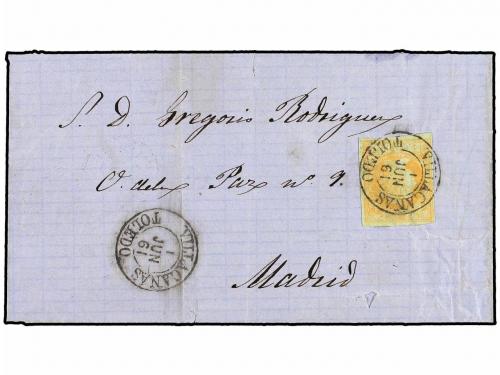 S. D. Gregorio Rodriguez
C. de la Paz nº 9.
Madrid
VILLACAÑAS
1
JUN
61
TOLEDO
VILLACAÑAS
1
JUN
61
TOLEDO